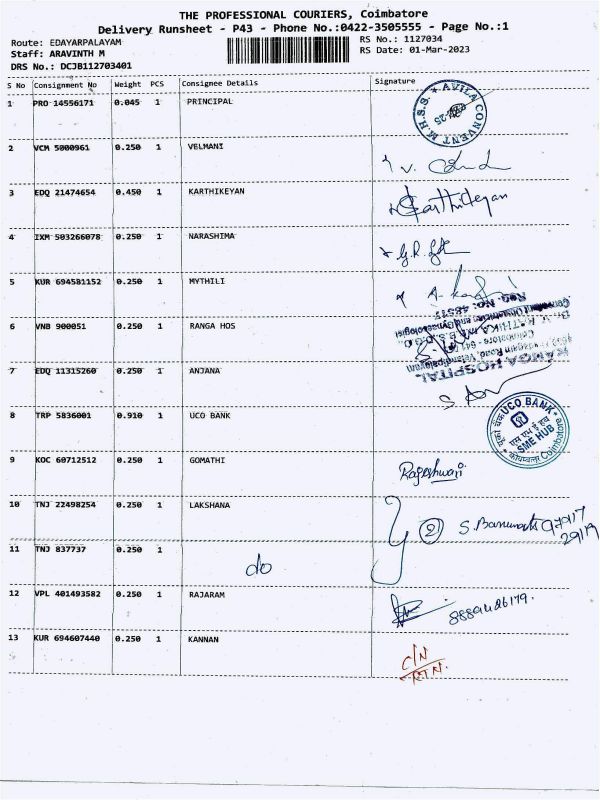 THE PROFESSIONAL COURIERS, Coimbatore
Delivery Runsheet - P43 - Phone No.:0422-3505555 - Page No.:1
Route: EDAYARPALAYAM
RS No.: 1127034
Staff: ARAVINTH M
RS Date: 01-Mar-2023
DRS No.: DCJB112703401
S No Consignment No Weight PCS Consignee Details Signature
1 PRO 14556171 0.045 1 PRINCIPAL
AVILA CONVENT M.H.S.S.
2 VCM 5000961 0.250 1 VELMANI
3 EDQ 21474654 0.450 1 KARTHIKEYAN Karthikeyan
4 IXM 503266078 0.250 1 NARASHIMA
5 KUR 694581152 0.250 1 MYTHILI
6 VNB 900051 0.250 1 RANGA HOS
Reg. No: 48517
Consultant Obstetrician and Gynaecologist
Coimbatore
Road, Velandipalayam
RANGA HOSPITAL
7 EDQ 11315260 0.250 1 ANJANA
8 TRP 5836001 0.910 1 UCO BANK
UCO BANK
यूको बैंक
SME HUB
कोयम्बत्तूर Coimbatore
9 KOC 60712512 0.250 1 GOMATHI Rajeshwari
10 TNJ 22498254 0.250 1 LAKSHANA
2 S.
11 TNJ 837737 0.250 1 do
12 VPL 401493582 0.250 1 RAJARAM
13 KUR 694607440 0.250 1 KANNAN
C/N
RTN.